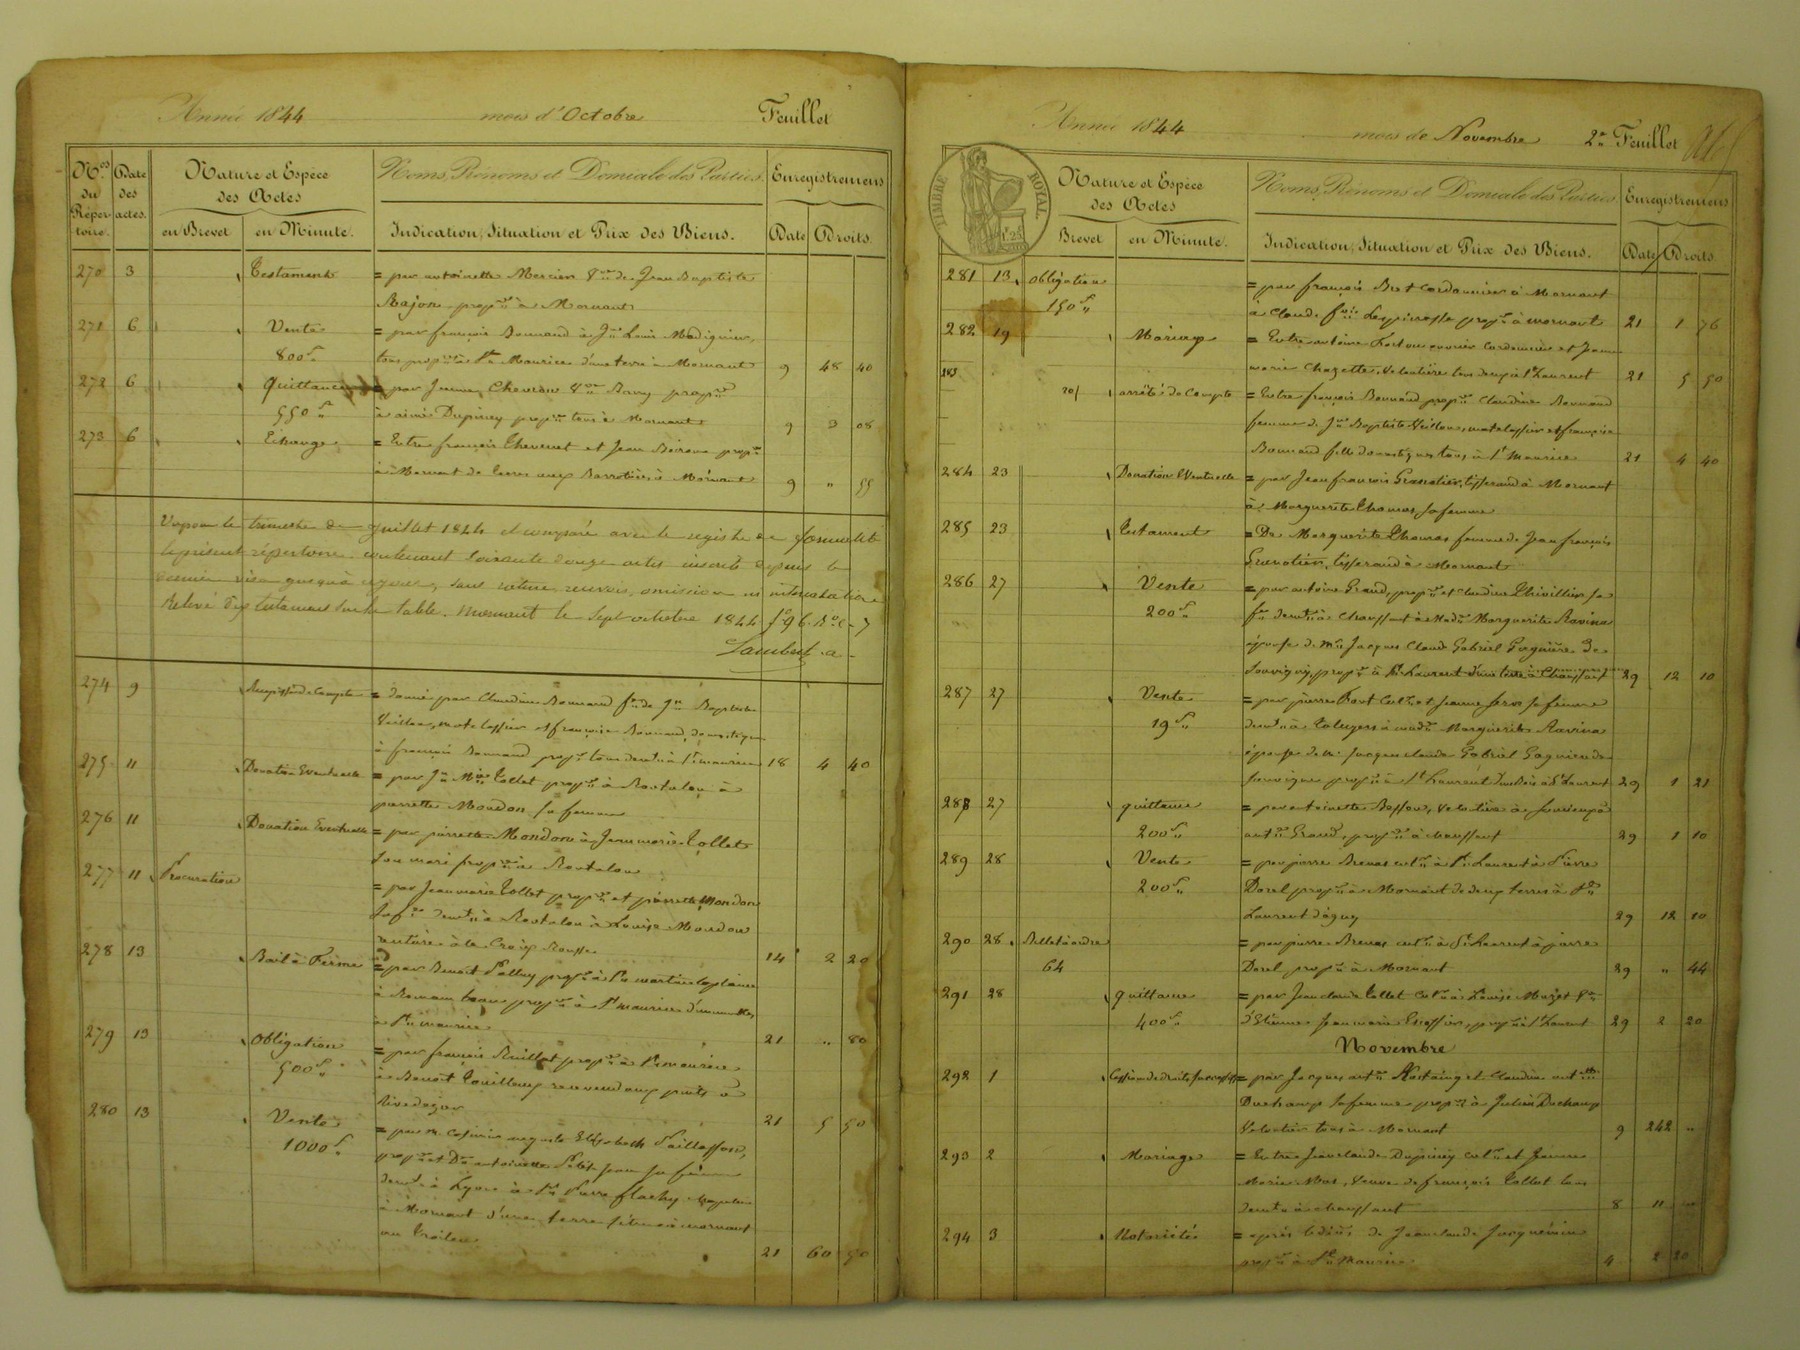 Année 1844 mois d'Octobre Feuillet
Nos du Répertoire. Date des actes. Nature et Espèce des Actes Noms, Prénoms et Domicile des Parties. Enregistremens
en Brevet en Minute. Indication, Situation et Prix des Biens. Date Droits.
270 3 Testament = par antoinette Mercier Vve de Jean Baptiste
Rajon propre à Mornant
271 6 Vente = par françois Bonnand à Jn Louis Madignier,
800f tous propres à St Maurice d'une terre à Mornant 9 48 40
272 6 quittance = par Jeanne Vve propre
550f à aimé Dupiney propre tous à Mornant 9 3 08
273 6 Echange = Entre françois Thevenet et Jean propres
à Mornant de terres aux à Mornant 9 " 55
Vu pour le trimestre de juillet 1844 et comparé avec le registre de formalité
le présent répertoire contenant soixante douze actes inscrits depuis le
dernier visa jusqu'à ce jour, sans rature, renvois, omission ni intercalation
Relevé des testamens sur la table. Mornant le Sept octobre 1844 f° 96 R° C. 7
Lambert
274 9 de Compte = donné par Claudine Bonnand fe de Jn Baptiste
Veillon, matelassier et françoise Bonnand, domestique
à françois Bonnand propre tous demt à St maurice 18 4 40
275 11 Donation Eventuelle = par Jn Mie Collet propre à Rontalon à
pierrette Mondon sa femme
276 11 Donation Eventuelle = par pierrette Mondon à Jean marie Collet
son mari propre à Rontalon
277 11 Procuration = par Jean marie Collet propre et pierrette Mondon
sa fe demt à Rontalon à Louise Mondon
rentière à la Croix Rousse 14 2 20
278 13 Bail à Ferme = par Benoît propre à St martin la plaine
à Romain propre à St maurice d'immeubles
à St maurice 21 " 80
279 13 Obligation = par françois propre à St maurice
500f à Benoît
Rivedegier 21 5 50
280 13 Vente = par m. Casimir auguste Elisabeth Paillasson,
1000f propre et De antoinette Petit Jean sa femme
demt à Lyon à Sr Pierre flachy
à Mornant d'une terre située à mornant
au 21 60 50
Année 1844 mois de Novembre 2e Feuillet
TIMBRE ROYAL.
1f 25c
Nature et Espèce des Actes Noms, Prénoms et Domicile des Parties. Enregistremens
Brevet en Minute. Indication, Situation et Prix des Biens. Date Droits.
281 13 Obligation = par françois Bret Cordonnier à Mornant
150f à Claude propre à mornant 21 1 76
282 19 Mariage = Entre antoine ouvrier Cordonnier et Jeanne
marie Chazette, Veloutière tous deux à St Laurent 21 5 50
283 20 arrêté de Compte = Entre françois Bonnand propre Claudine Bonnand
femme de Jn Baptiste Veillon, matelassier et françoise
Bonnand fille domestique tous à St Maurice 21 4 40
284 23 Donation Eventuelle = par Jean françois Granotier, tisserand à Mornant
à Marguerite Thomas sa femme
285 23 Testament = De Marguerite Thomas femme de Jean françois
Granotier, tisserand à Mornant
286 27 Vente = par antoine Grand, propre et claudine Thivillier sa
200f fe demt à Chaussant à Made Marguerite Ravina
épouse de Mr Jacques Claude Gabriel de
Souvigny, propre à St Laurent d'une terre à Chaussant 29 12 10
287 27 Vente = par pierre Cultr et Jeanne sa femme
19f demt à Taluyers à made Marguerite Ravina
épouse de Mr Jacques claude Gabriel de
Souvigny propre à St Laurent d'un bois à St Laurent 29 1 21
288 27 quittance = par antoinette Besson, Veloutière à
200f antne Grand, propre à chaussant 29 1 10
289 28 Vente = par pierre cultr à St Laurent à Pierre
200f Dorel propre à Mornant de deux terres à St
Laurent d'agny 29 12 10
290 28 Billet à ordre = par pierre cultr à St Laurent à pierre
64 Dorel propre à Mornant 29 " 44
291 28 quittance = par Jean claude Collet Cultr à Louise Vve
400f d'Etienne Jean marie Escoffier, propre à St Laurent 29 2 20
Novembre
292 1 Cession de droits Successifs = par Jacques antne et Claudine
Duchamp sa femme propre à Julien Duchamp
Veloutier tous à Mornant 9 242 "
293 2 Mariage = Entre Jean claude Dupiney cultr et Jeanne
Marie veuve de françois Collet tous
demt à chaussant 8 11 "
294 3 Notoriété = après le décès de Jean claude Jacquemin
propre à St Maurice 4 2 20